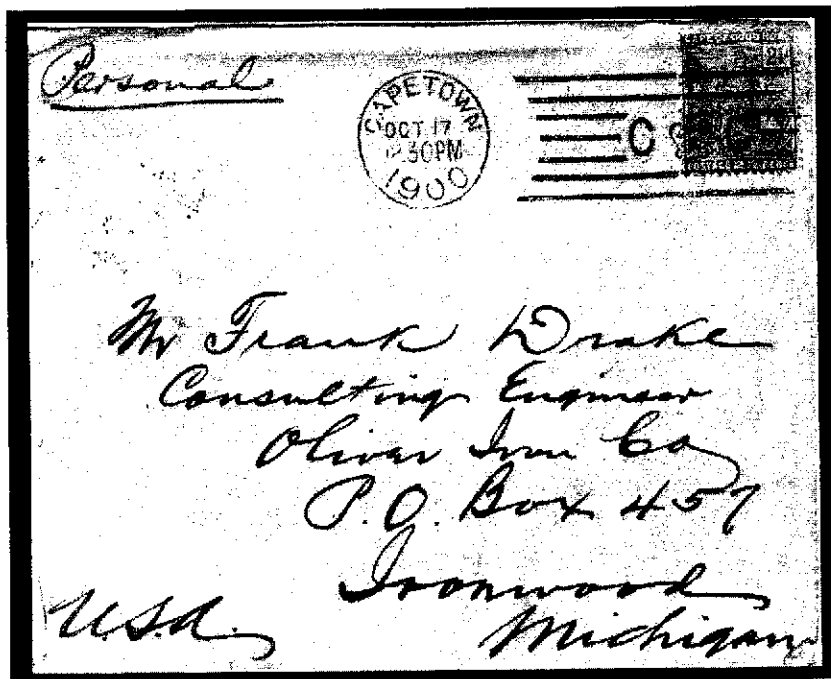 Personal
CAPETOWN
OCT 17
30PM
1900
C
Mr Frank Drake
Consulting Engineer
Oliver Iron Co
P.O. Box 457
Ironwood
U.S.A.
Michigan